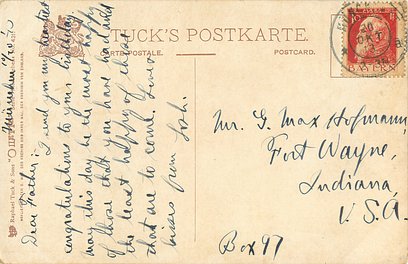 TUCK'S POSTKARTE.
CARTE POSTALE.
POSTCARD.
BAYERN
Raphael Tuck & Sons' "OIL
München 19
Dear Father:
I send you my heartiest
congratulations to your birthday
may this day be the most happy
of those that you have had and
the least happy of those
that are to come.
kisses from
Mr. G. Max Hofmann,
Fort Wayne,
Indiana,
U.S.A.
Box 97